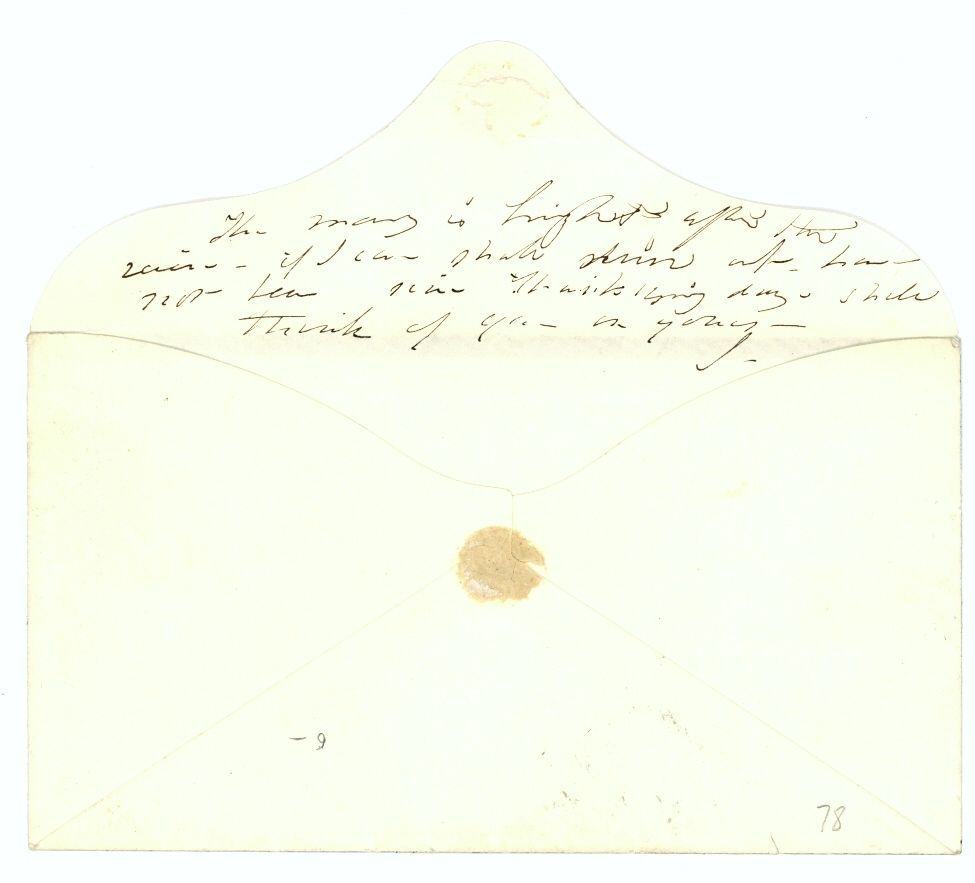 The moon is bright after the
rain - if I can shall run out - have
not been since Thanksgiving day - shall
think of you on yours -
J -
- 9
78